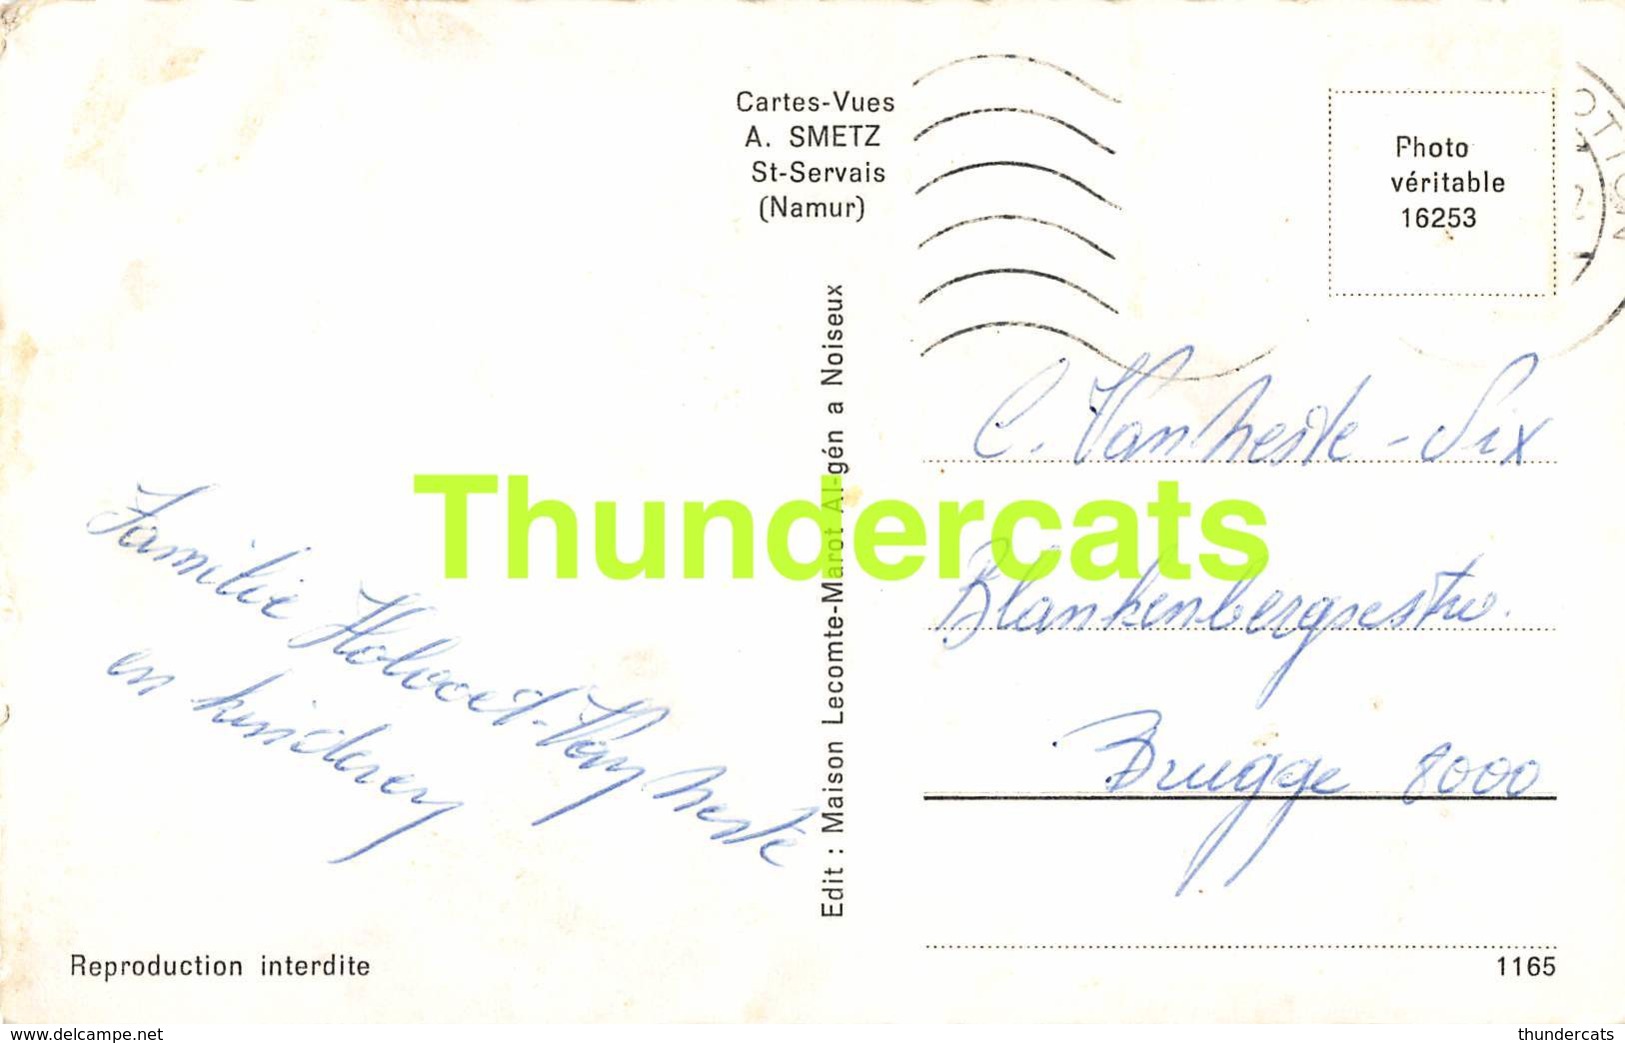 Cartes-Vues
A. SMETZ
St-Servais
(Namur)
Photo
véritable
16253
Edit : Maison Lecomte-Marot Al-gén a Noiseux
C. Vanheste - Six
Blankenbergsestr.
Brugge 8000
Familie
en kinderen
Thundercats
Reproduction interdite
1165
www.delcampe.net
thundercats